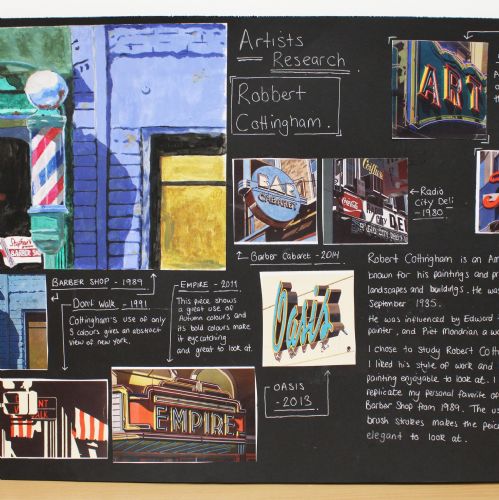 Artists
Research
Robbert
Cottingham.
ART
BAR
CABARET
Coca-Cola
DELI
RADIO CITY DELI
← Radio
City Deli
- 1980
Barber Cabaret - 2014
BARBER SHOP - 1989
Dont Walk - 1991
Cottingham's use of only
3 colours gives an abstract
view of new york.
EMPIRE - 2011
This piece shows
a great use of
Autumn colours and
its bold colours make
it eycatching
and great to look at.
Oasis
OASIS
- 2013
EMPIRE
BARBER SHOP
Robert Cottingham is an Am
known for his paintings and p
landscapes and buildings. He wa
September 1935.
He was influenced by Edward
painter, and Piet Mondrian a
I chose to study Robert Cott
I liked his style of work and
painting enjoyable to look at. I
replicate my personal favorite of
Barber Shop from 1989. The us
brush strokes makes the
elegant to look at.